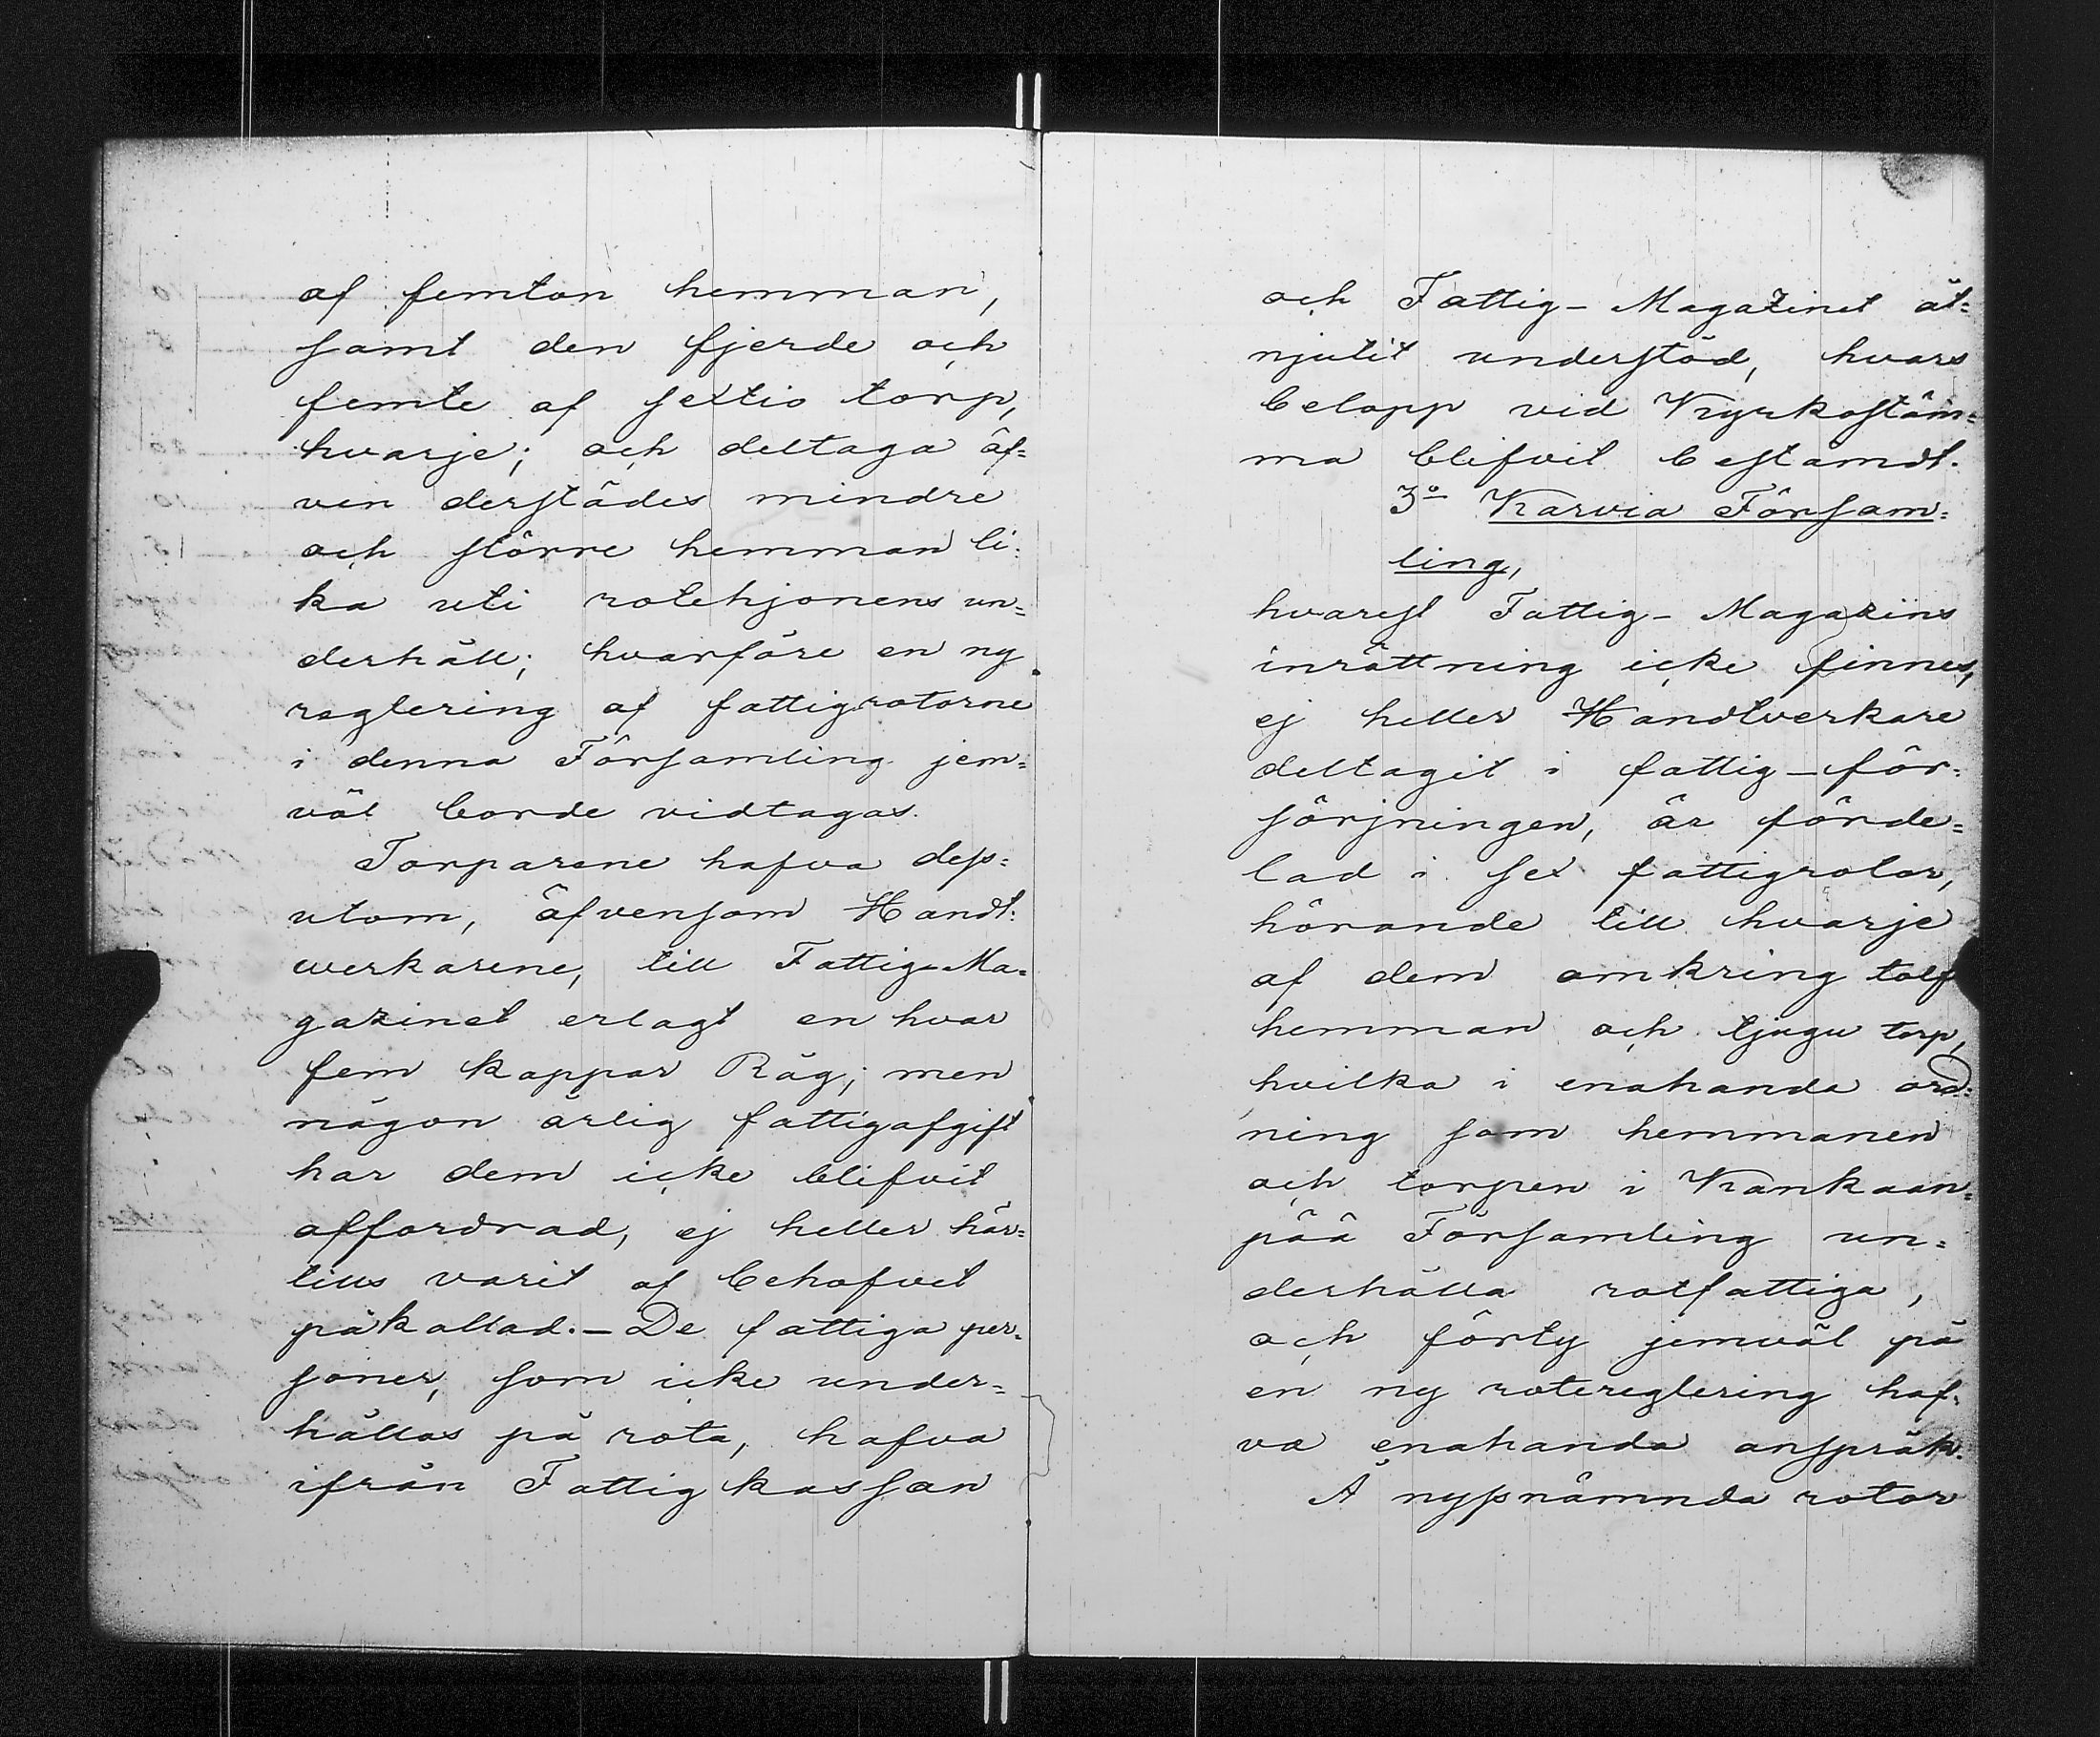 af femton hemman,
samt den fjerde och
femte af sextio torp,
hvarje; och deltaga äf=
ven derstädes mindre
och större hemman li=
ka uti rotehjonens un=
derhåll; hvarföre en ny
reglering af fattigrotorne
i denna Församling jem=
väl borde vidtagas.
Torparene hafva dess=
utom, äfvensom Handt=
werkarene, till Fattig-Ma=
gazinet erlagt en hvar
fem kappar Råg; men
någon årlig fattigafgift
har dem icke blifvit
affordrad, ej heller här=
tills varit af behofvet
påkallad. - De fattiga per=
soner, som icke under=
hållas på rota, hafva
ifrån Fattigkassan
och Fattig-Magazinet åt=
njutit understöd, hvars
belopp vid Kyrkostäm=
ma blifvit bestämdt.
3o Karvia Försam=
ling,
hvarest Fattig-Magazins
inrättning icke finnes,
ej heller Handtverkare
deltagit i fattig-för=
sörjningen, är förde=
lad i sex fattigrotar,
hörande till hvarje
af dem omkring tolf
hemman och tjugu torp,
hvilka i enahanda ord=
ning som hemmanen
och torpen i Kankaan=
pää Församling un=
derhålla rotfattiga,
och förty jemväl på
en ny rotereglering haf=
va enahanda anspråk.
Å nyssnämnda rotor